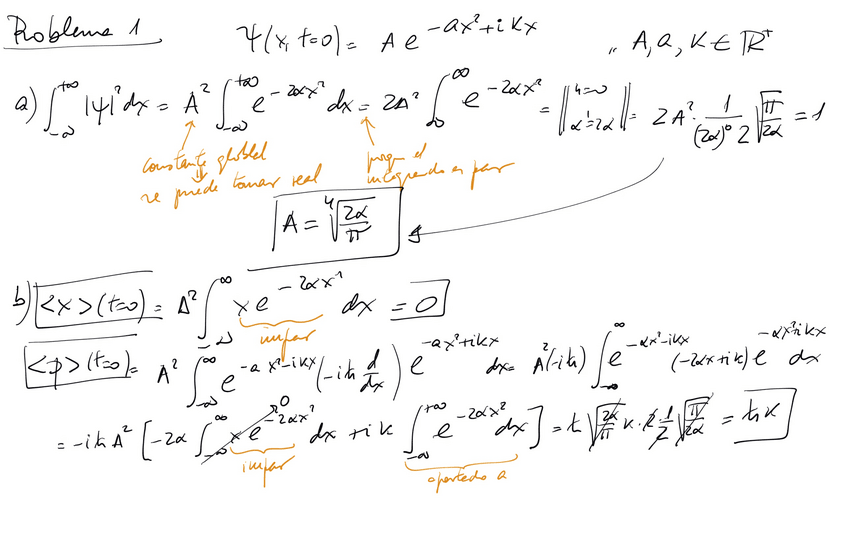 Problema 1   Ψ(x, t=0) = A e^{-ax²+ikx}   ,, A, a, K ∈ ℝ⁺
a) ∫_{-∞}^{+∞} |ψ|² dx = A² ∫_{-∞}^{+∞} e^{-2αx²} dx = 2A² ∫_0^∞ e^{-2αx²} = || n=0 α'=2α || = 2A² · 1/(2α)⁰ 2 √(π/2α) = 1
constante global se puede tomar real
porque el integrando es par
A = ⁴√(2α/π)
b) <x>(t=0) = A² ∫_{-∞}^{∞} x e^{-2αx²} dx = 0
impar
<p>(t=0) = A² ∫_{-∞}^{∞} e^{-ax²-ikx} (-iħ d/dx) e^{-ax²+ikx} dx = A²(-iħ) ∫_{-∞}^{∞} e^{-αx²-ikx} (-2αx+ik) e^{-αx²+ikx} dx
= -iħA² [ -2α ∫_{-∞}^{∞} x e^{-2αx²} dx 0 + ik ∫_{-∞}^{+∞} e^{-2αx²} dx ] = ħ √(2α/π) k · 2 · 1/2 √(π/2α) = ħk
impar   apartado a